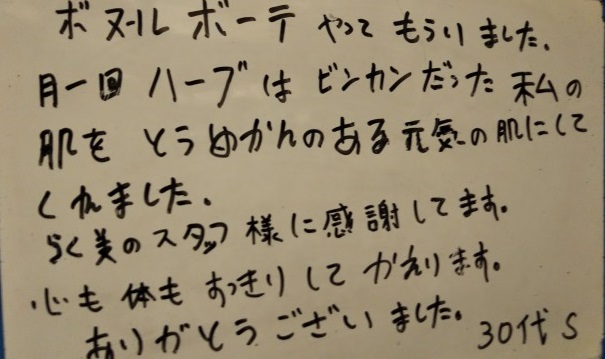 ボヌールボーテ やって もらいました。
月一回 ハーブは ビンカンだった 私の
肌を とうめいかんのある 元気の肌にして
くれました。
らく美のスタッフ様に感謝してます。
心も 体も すっきりして かえります。
ありがとうございました。 30代 S